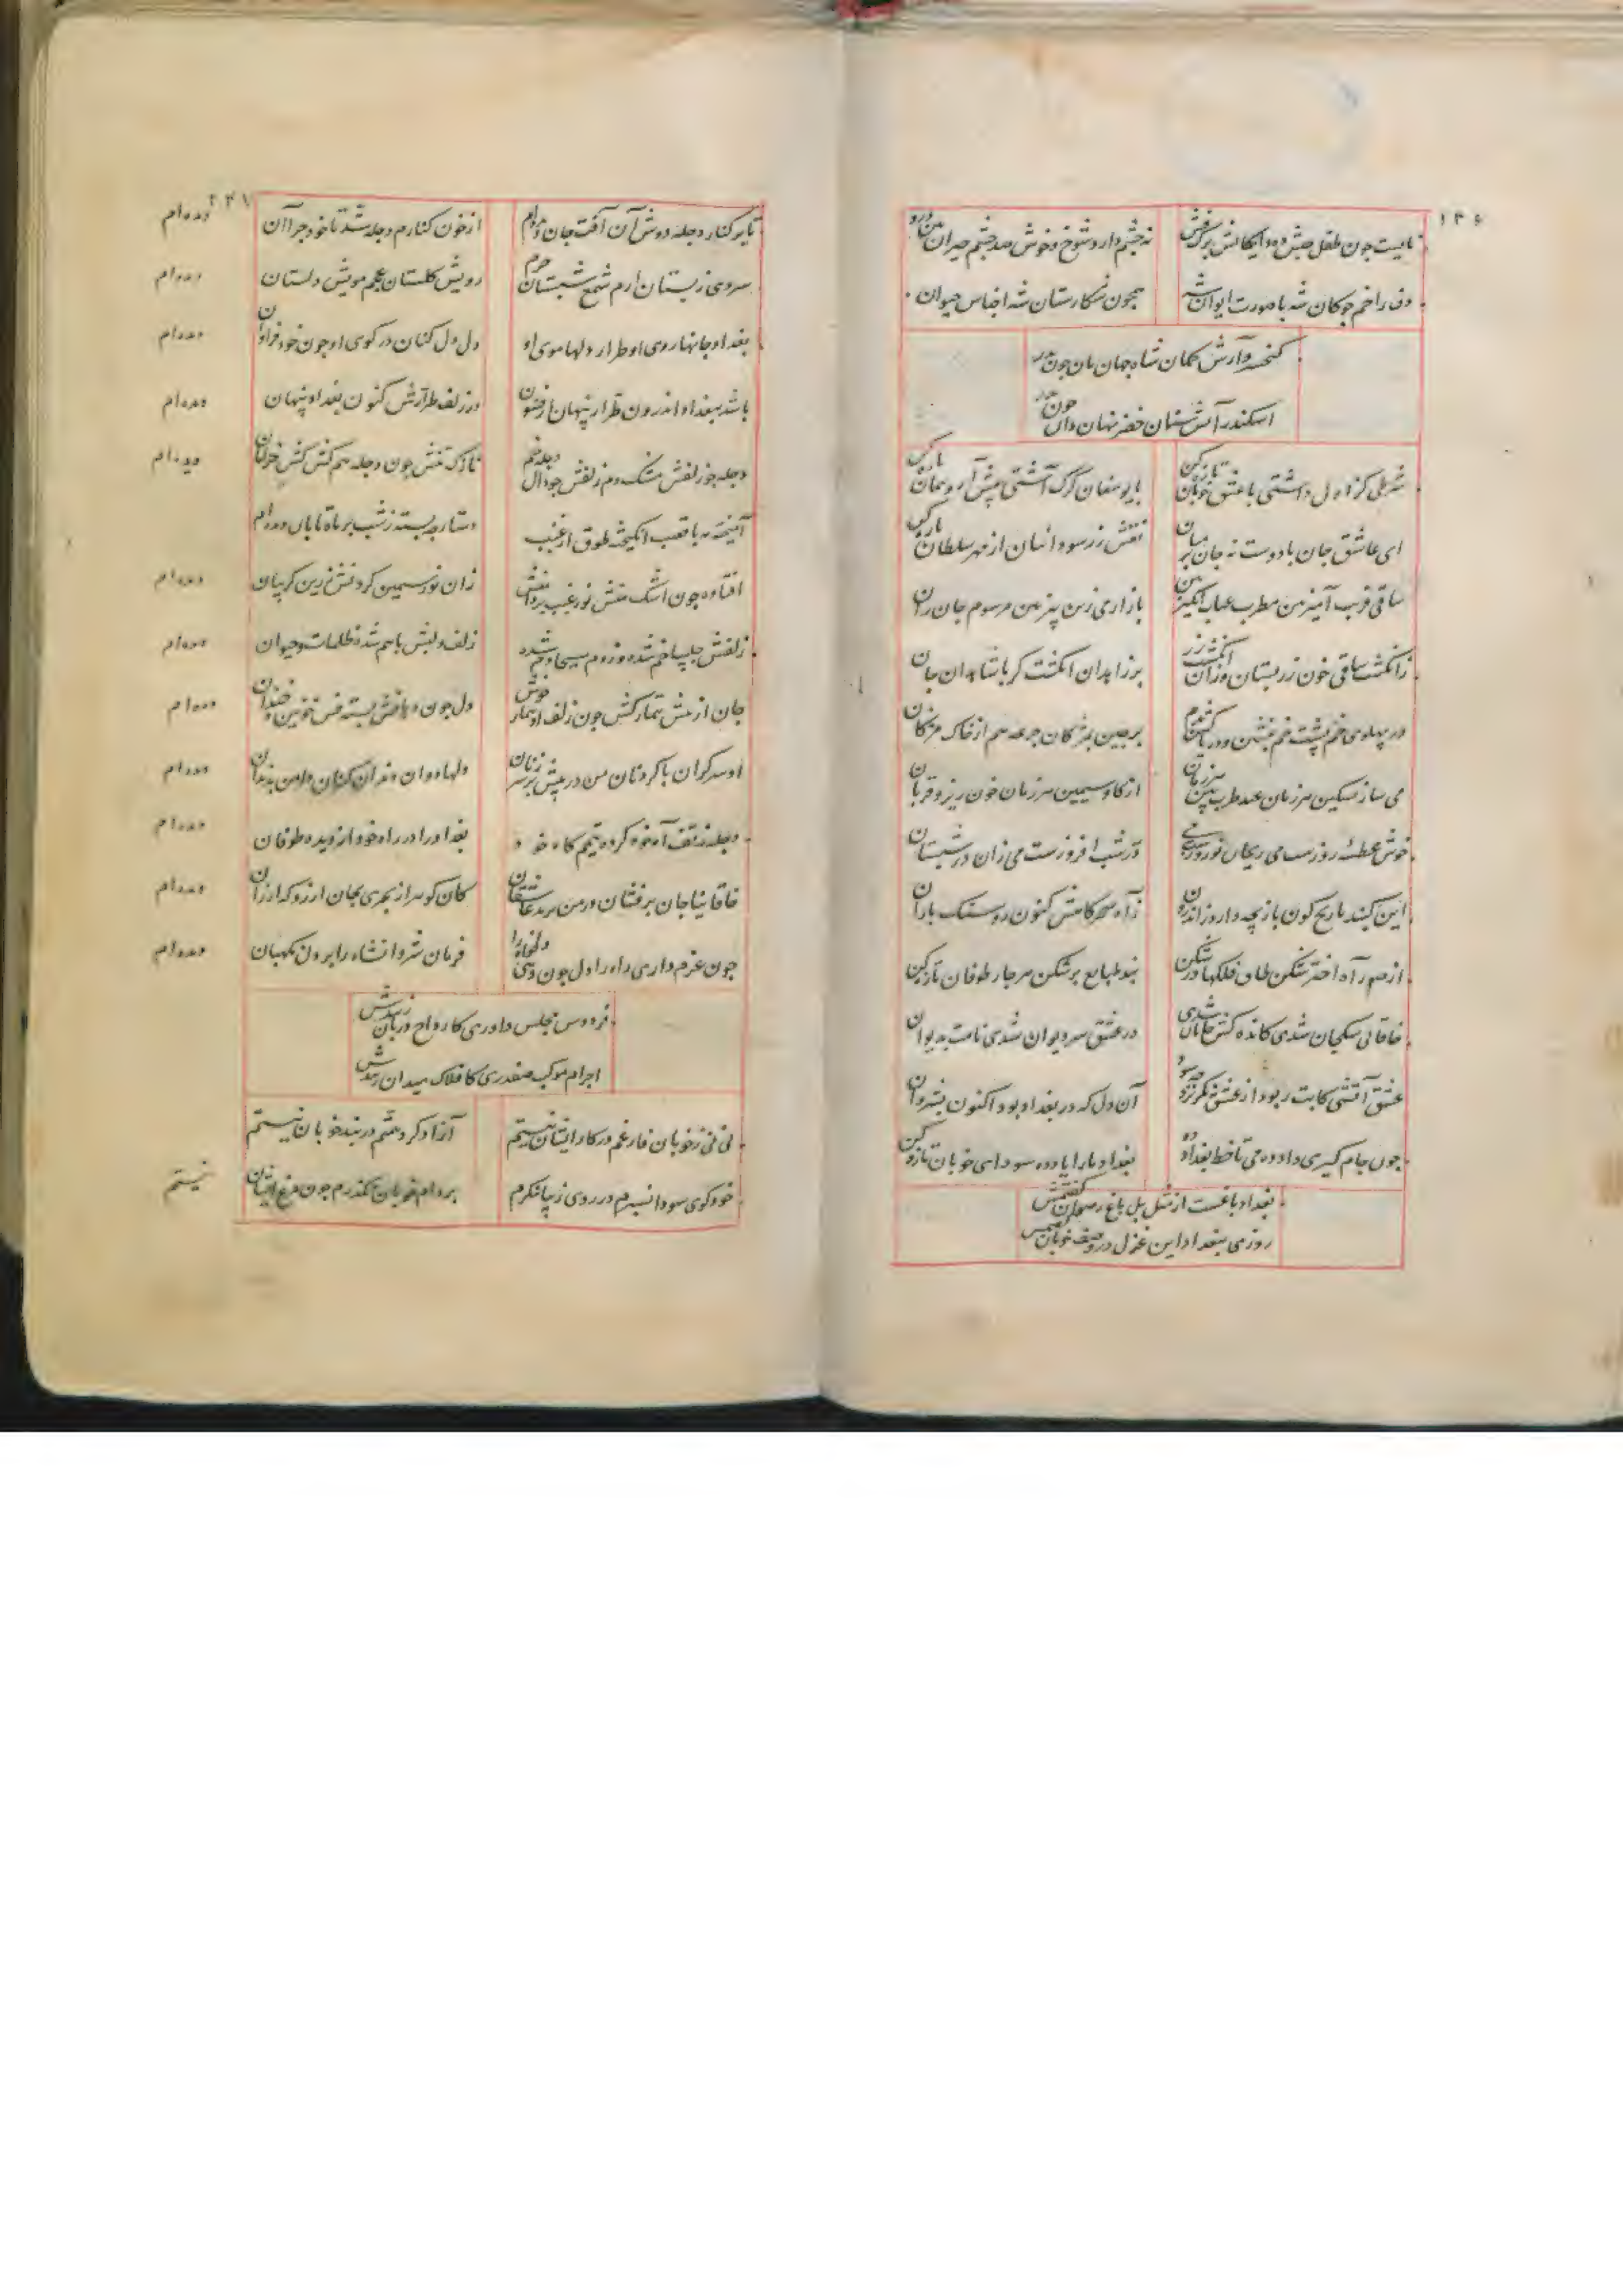 ۱۴۶
نایست چون طفل حبش ده دایکانش برکش نه چشم دارد شوخ و خوش صد چشم حیران بین درو
دف را خم چوکان شه با صورت ایوان شه همچون شکارستان شه اجناس حیوان
کیخسرو آرش کمان شاه جهان بان چون پدر
اسکندر آتش سنان خضر نهان دان چون پدر
شرطی کز اول داشتی با عشق خوبان تازه کن با یوسفان کرک آشتی پیش آر و پیمان تازه کن
ای عاشق جان بر میان با دوست نه جان بر میان نقش زر سودائیان از مهر سلطان تازه کن
ساقی فریب آمیز بین مطرب عتاب انکیز بین بازار می زین تیز بین مرسوم جان زان
زانکشت ساقی خون رز بستان وزان انکشت رز بر زاهدان انکشت کز با شاهدان جان
در پهلوی خم پشت خم بنشین و دریا کش بدم بر چین بمژکان جرعه هم از خاک مژکان
می ساز تسکین هر زمان عید طرب بین هر زمان از کاو سیمین هر زمان خون ریز و قربان
خوش عطسهٔ روزست می ریحان نوروزست می در شب افروزست می زان در شبستان
این کنبد نارنج کون بازیچه دارد ز اندرون ز آه سحرکاهش کنون رو سنک باران
از صور آه اختر شکن طاق فلکها در شکن بند طبایع برشکن هر چار طوفان تازه کن
خاقانی سکجان شدی کانده کش جانان شدی در عشق سر دیوان شدی نامت بدیوان
عشق آتشی کابت ربود از عشق نکریزد آن دل که در بغداد بود اکنون بشروان
چون جام کیری داد ده می تا خط بغداد ده بغداد ما را یاد ده سودای خوبان تازه کن
بغداد باغست از مثل بل باغ رضوان کفتمش
روزی ببغداد این غزل در وصف خوبان کفتمش
۲۴۷
تا بر کنار دجله دوش آن آفت جان دیده‌ام از خون کنارم دجله شد تا خود چرا آن دیده‌ام
سروی ز بستان ارم شمع شبستان حرم رویش کلستان عجم مویش دلستان دیده‌ام
بغداد جانها روی او طرار دلها موی او دل دل کنان در کوی او چون خود فراوان دیده‌ام
باشد ببغداد اندرون طرار پنهان از فسون در زلف طرارش کنون بغداد پنهان دیده‌ام
دجله ز زلفش مشک دم زلفش چو دال دجله خم نازک تنش چون دجله هم کش کش خرامان دیده‌ام
آمیخته مه با قصب انکیخته طوق از غبب دستارچه بسته ز شب بر ماه تابان دیده‌ام
افتاده چون اشک منش زان نور سیمین کردنش زرین کریبان دیده‌ام
زلفش چلیپا خم شده وز دم مسیحا دم شده زلف و لبش با هم شده ظلمات و حیوان دیده‌ام
جان از منش تیمار کش چون زلف او بیمار خوش دل چون دهانش پسته فش خونین و خندان دیده‌ام
او سرکران با کردنان من در پیش بر سر زنان دلها دوان دندان کنان دامن بدندان دیده‌ام
دجله ز تف آه خود کرده تیمم کاه خود بغداد را در راه خود از دیده طوفان دیده‌ام
خاقانیا جان برفشان در من یزید عاشقان کان کوهر از بحری بجان ارزد که ارزان دیده‌ام
چون عزم داری راه را دل چون دهی دلخواه را فرمان شروانشاه را بر دل نکهبان دیده‌ام
فردوس مجلس داوری کارواح دربان زیبدش
اجرام موکب صفدری کافلاک میدان زیبدش
نی نی ز خوبان فارغم در کار ایشان نیستم آزاد کرد همتم در بند خوبان نیستم
خود کوی سودا نسپرم در روی زیبا ننکرم بر دام خوبان نکذرم چون مرغ ایشان نیستم